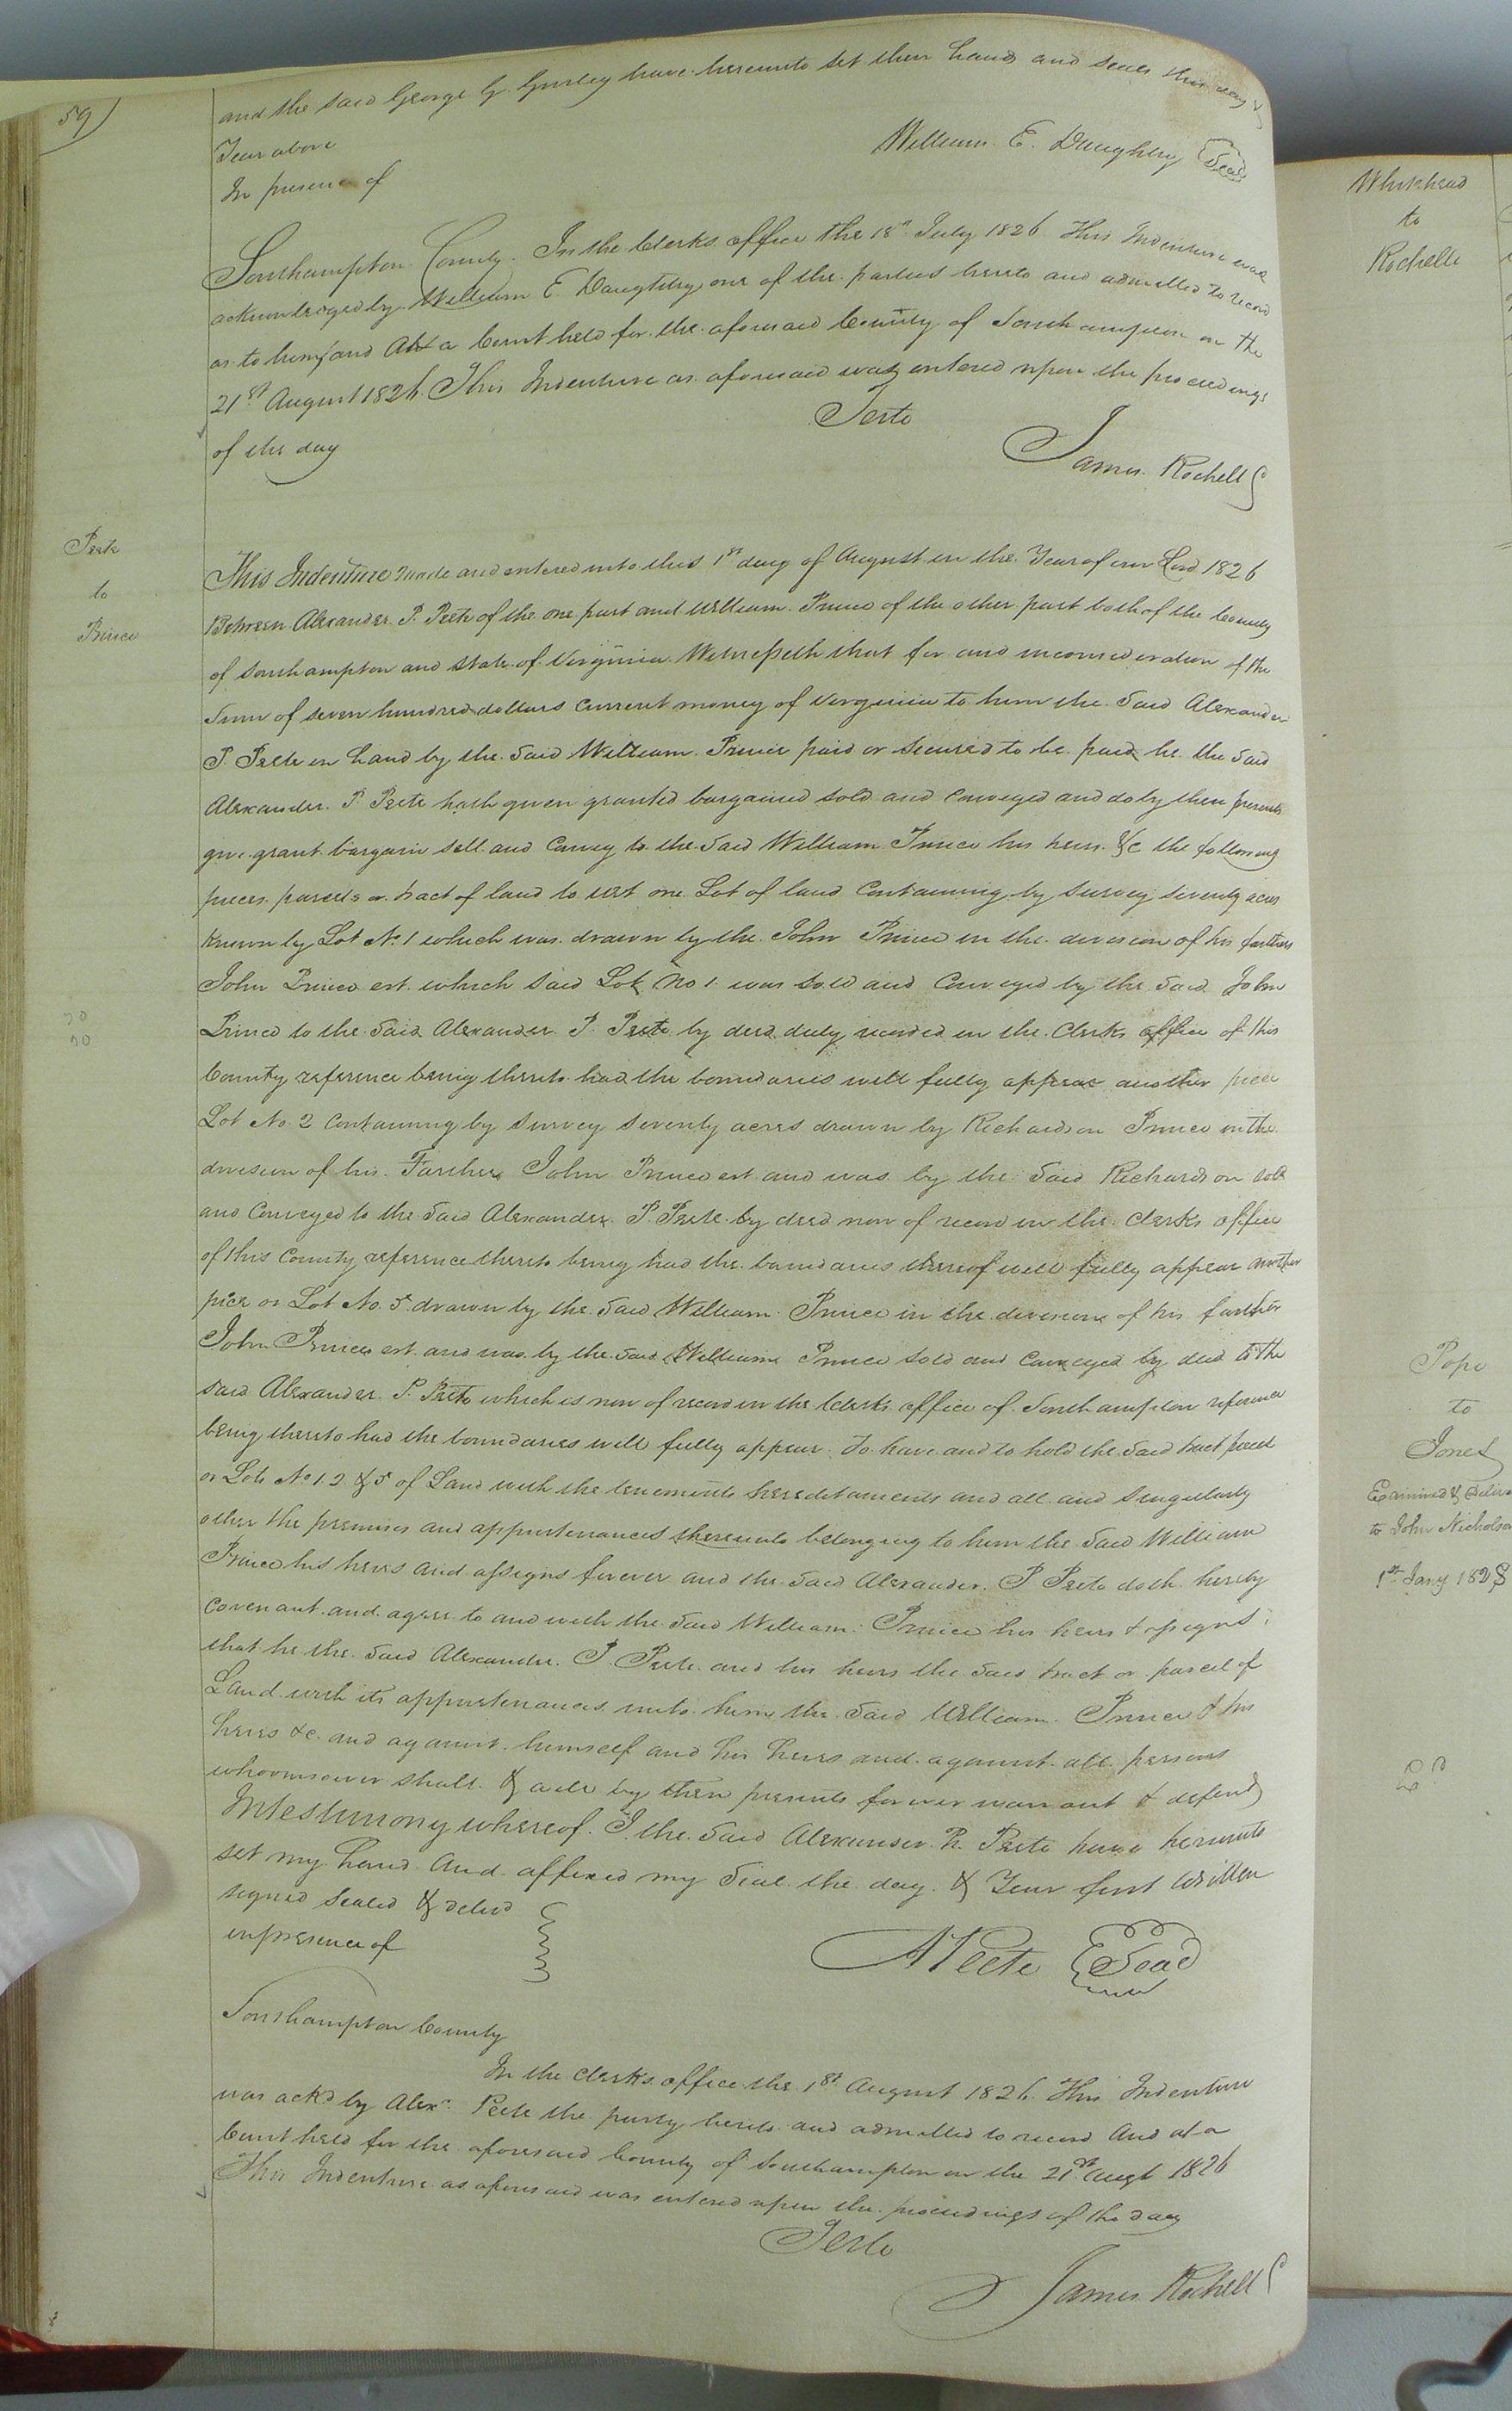 59
and the said George G. Gurley have hereunto set their hands and seals this day &
Year above
William E. Daughtry Seal
In presence of
Southampton County. In the Clerks office the 18th July 1826 This Indenture was
acknowledged by William E. Daughtry one of the parties hereto and admitted to record
as to him, and At a Court held for the aforesaid County of Southampton on the
21st August 1826. This Indenture as aforesaid was entered upon the proceedings
of the day
Teste
James Rochelle
Peete
to
Prince
This Indenture made and entered into this 1st day of August in the Year of our Lord 1826
Between Alexander P. Peete of the one part and William Prince of the other part both of the County
of Southampton and State of Virginia Witnesseth that for and in consideration of the
Sum of seven hundred dollars Current money of Virginia to him the Said Alexander
P. Peete in hand by the Said William Prince paid or Secured to be paid he the Said
Alexander P. Peete hath given granted bargained sold and Conveyed and do by these presents
give grant bargain sell and Convey to the Said William Prince his heirs &c the following
pieces parcels or tract of land to wit one Lot of land Containing by Survey Seventy acres
known by Lot No 1 which was drawn by the John Prince in the division of his farthers
John Prince est. which said Lot No 1 was sold and Conveyed by the Said John
Prince to the Said Alexander P. Peete by deed duly recorded in the Clerks office of this
County reference being thereto had the boundaries will fully appear another piece
Lot No 2 Containing by Survey Seventy acres drawn by Richardson Prince in the
division of his Farthers John Prince est and was by the Said Richardson sold
and Conveyed to the Said Alexander P. Peete by deed now of record in the Clerks office
of this County reference thereto being had the boundaries thereof will fully appear another
piece or Lot No. 5 drawn by the Said William Prince in the division of his farther
John Prince est. and was by the Said William Prince Sold and Conveyed by deed to the
said Alexander P. Peete which is now of record in the Clerks office of Southampton reference
being thereto had the boundaries will fully appear. To have and to hold the Said tract parcel
or Lots No 1. 2 & 5 of Land with the tenements hereditaments and all and Singularly
other the premises and appurtenances thereunto belonging to him the Said William
Prince his heirs and assigns forever and the Said Alexander P Peete doth hereby
Covenant and agree to and with the Said William Prince his heirs & assigns
that he the Said Alexander P. Peete and his heirs the Said tract or parcel of
Land with its appurtenances unto him the Said William Prince & his
heirs &c. and against himself and his heirs and against all persons
whoomsoever shall & will by these presents forever warrant & defend
In testimony whereof I the Said Alexander P. Peete have hereunto
set my hand And affixed my Seal the day & Year first Written
signed Sealed & delivd
in presence of
APeete Seal
Southampton County
In the Clerks office the 1st August 1826. This Indenture
was ackd by Alexr Peete the party hereto and admitted to record And at a
Court held for the aforesaid County of Southampton on the 21st Augt 1826
This Indenture as aforesaid was entered upon the proceedings of the day
Teste
James Rochelle
Whitehead
to
Rochelle
Pope
to
Jones
Examined &
to John Nicholson
1st Jany 1828